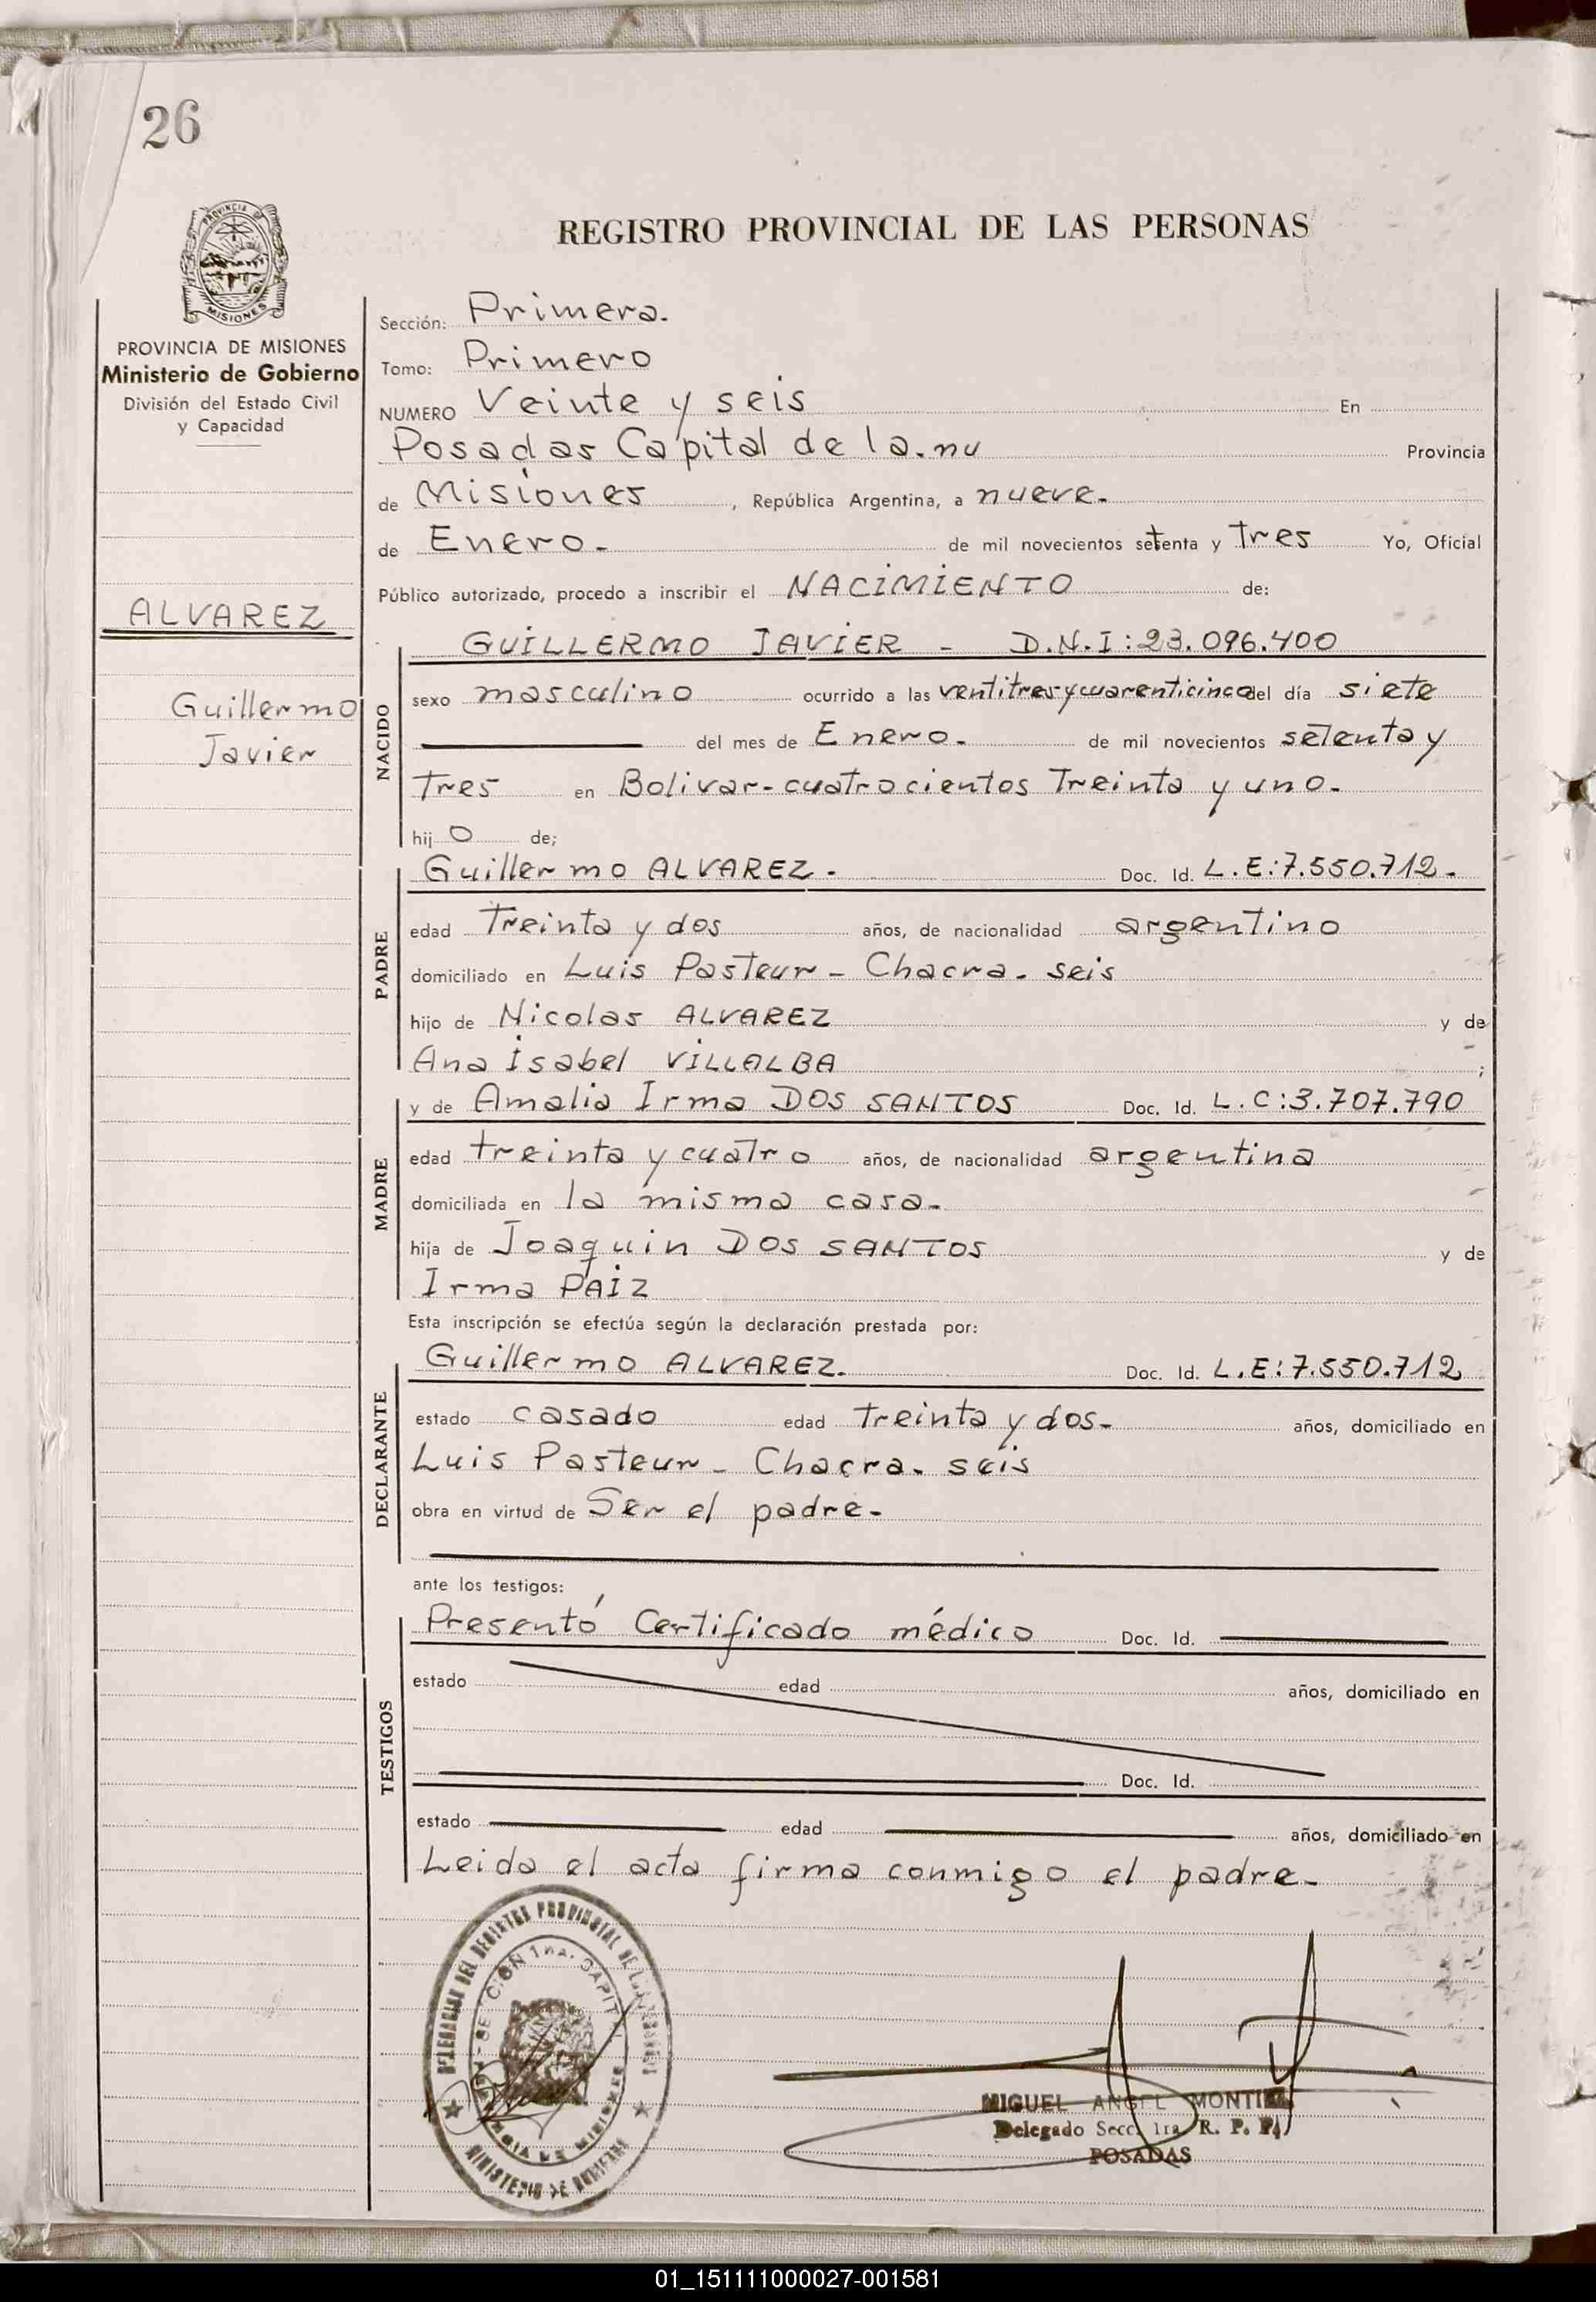 26
REGISTRO PROVINCIAL DE LAS PERSONAS
PROVINCIA DE
MISIONES
PROVINCIA DE MISIONES
Ministerio de Gobierno
División del Estado Civil
y Capacidad
ALVAREZ
Guillermo
Javier
Sección: Primera.
Tomo: Primero
NUMERO Veinte y seis En
Posadas Capital de la. Provincia
de Misiones, República Argentina, a nueve.
de Enero. de mil novecientos setenta y tres Yo, Oficial
Público autorizado, procedo a inscribir el NACIMIENTO de:
NACIDO
GUILLERMO JAVIER - D.N.I: 23.096.400
sexo masculino ocurrido a las ventitres y cuarenticinco del día siete
del mes de Enero. de mil novecientos setenta y
tres en Bolivar-cuatrocientos Treinta y uno.
hijo de;
PADRE
Guillermo ALVAREZ. Doc. Id. L.E:7.550.712.
edad Treinta y dos años, de nacionalidad argentino
domiciliado en Luis Pasteur - Chacra. seis
hijo de Nicolas ALVAREZ y de
Ana isabel VILLALBA ;
MADRE
y de Amalia Irma DOS SANTOS Doc. Id. L.C:3.707.790
edad treinta y cuatro años, de nacionalidad argentina
domiciliada en la misma casa.
hija de Joaquin DOS SANTOS y de
Irma PAIZ
Esta inscripción se efectúa según la declaración prestada por:
DECLARANTE
Guillermo ALVAREZ. Doc. Id. L.E:7.550.712
estado casado edad treinta y dos. años, domiciliado en
Luis Pasteur - Chacra. seis
obra en virtud de Ser el padre.
ante los testigos:
TESTIGOS
Presentó Certificado médico Doc. Id.
estado edad años, domiciliado en
Doc. Id.
estado edad años, domiciliado en
Leida el acta firma conmigo el padre.
DEL REGISTRO PROVINCIAL DE
MINISTERIO DE
MIGUEL ANGEL MONTIEL
Delegado Secc. 1ra. R. P. P.
POSADAS
01_151111000027-001581